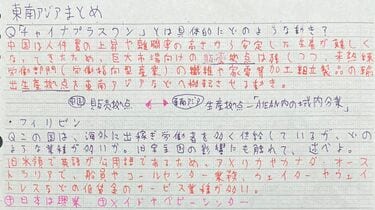 東南アジアまとめ
Q「チャイナプラスワン」とは具体的にどのような動き?
中国は人件費の上昇や離職率の高さから安定した生産が難しく
なってきたため、巨大市場向けの販売拠点は残しつつ、未熟練
労働部門(労働指向型産業)の繊維や家電加工組立製品の輸
出生産拠点を東南アジアなどへ移転させる動き。
中国 販売拠点 ←→ 東南アジア 生産拠点-ASEAN内の域内分業
・フィリピン
Qこの国は、海外に出稼ぎ労働者を多く供給しているが、どの
ような業種が多いか。旧宗主国の影響にも触れて、述べよ。
旧米領で英語が公用語であるため、アメリカやカナダ・オース
トラリアで、船員やコールセンター業務、ウェイターやウェイ
トレスなどの低賃金のサービス業種が多い。
日本は興業 メイドやベビーシッター